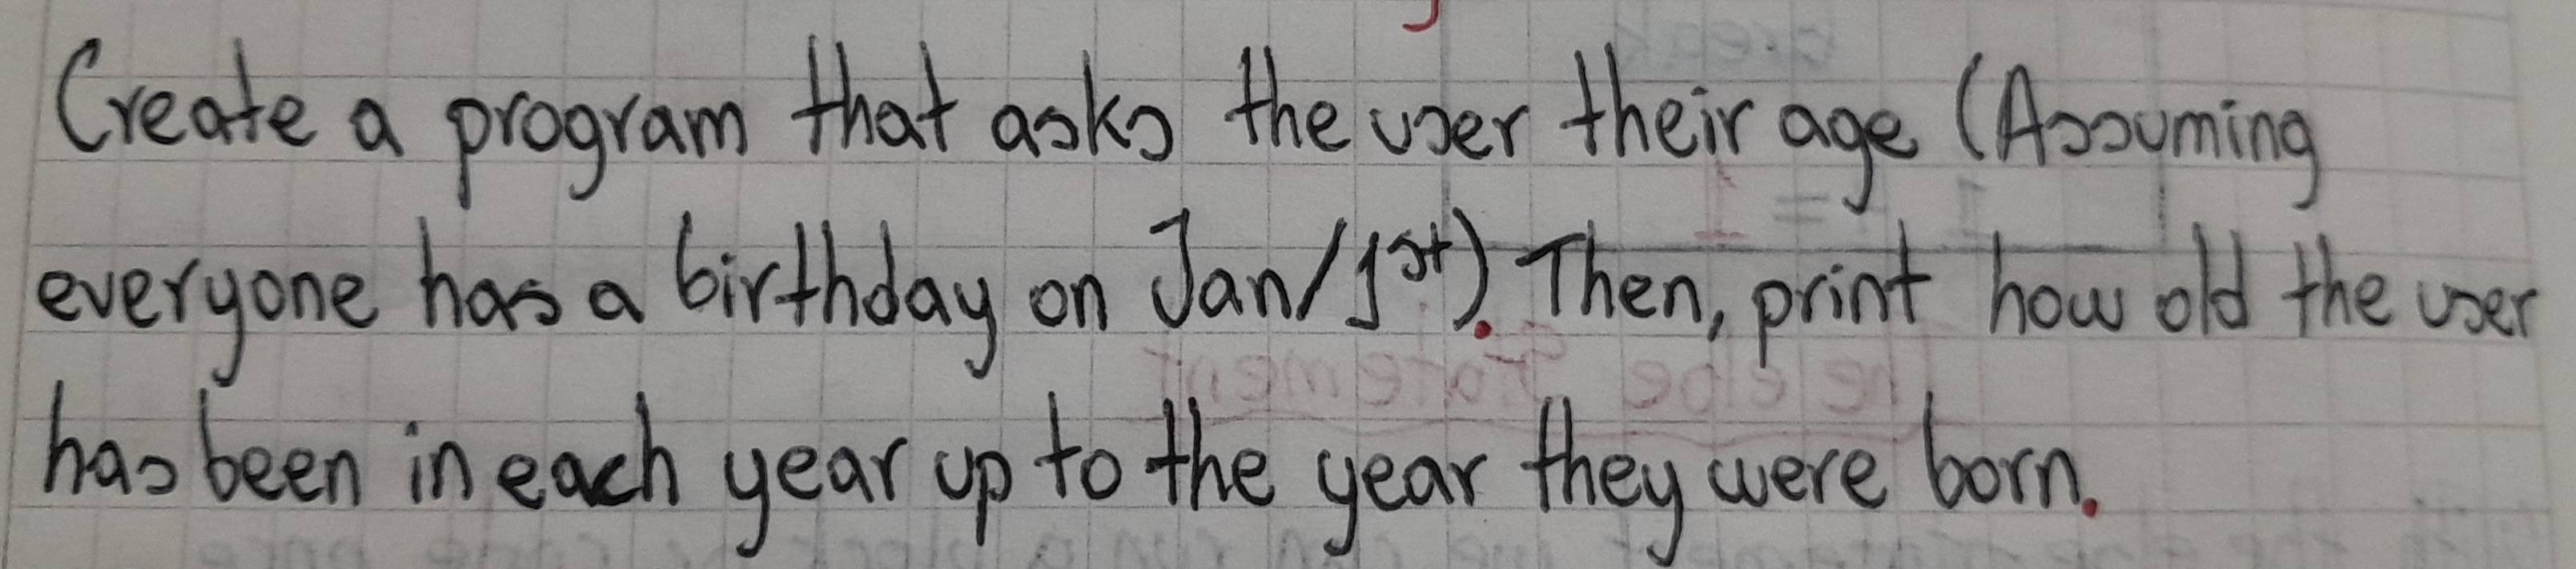 Create a program that asks the user their age (Assuming
everyone has a birthday on Jan/1st). Then, print how old the user
has been in each year up to the year they were born.